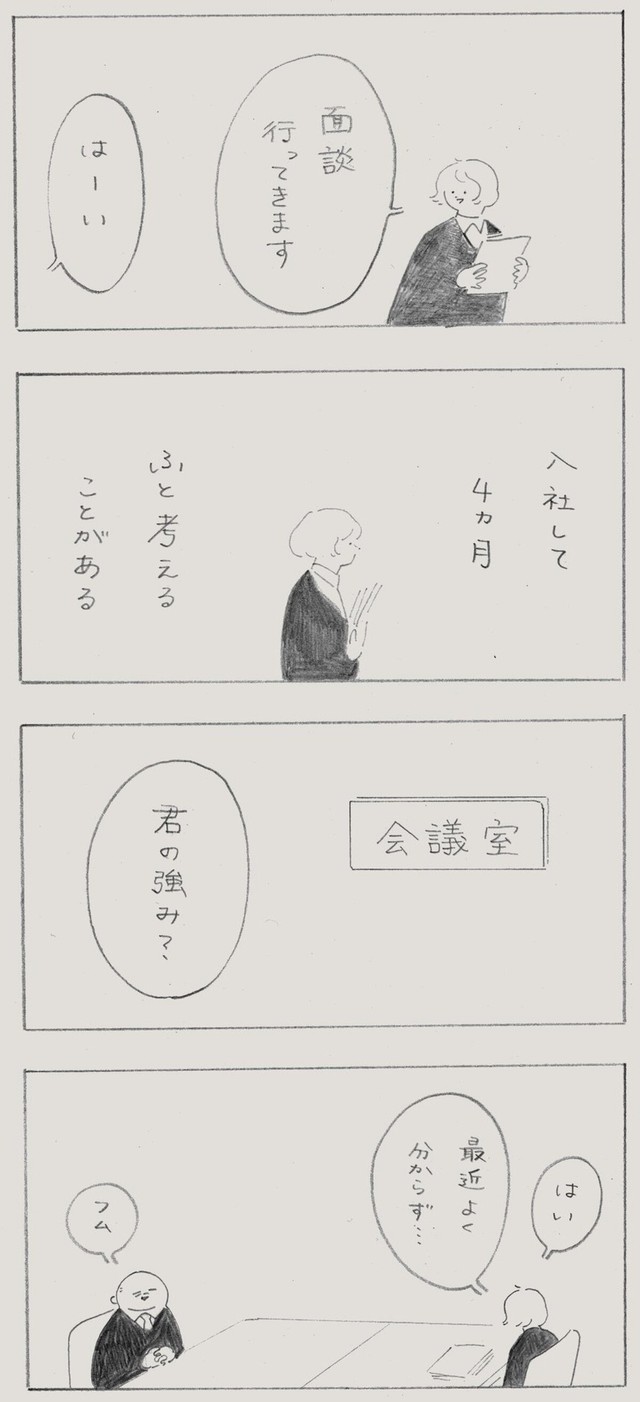 面談
行ってきます
はーい
入社して
4ヵ月
ふと考える
ことがある
会議室
君の強み?
はい
最近よく
分からず…
フム